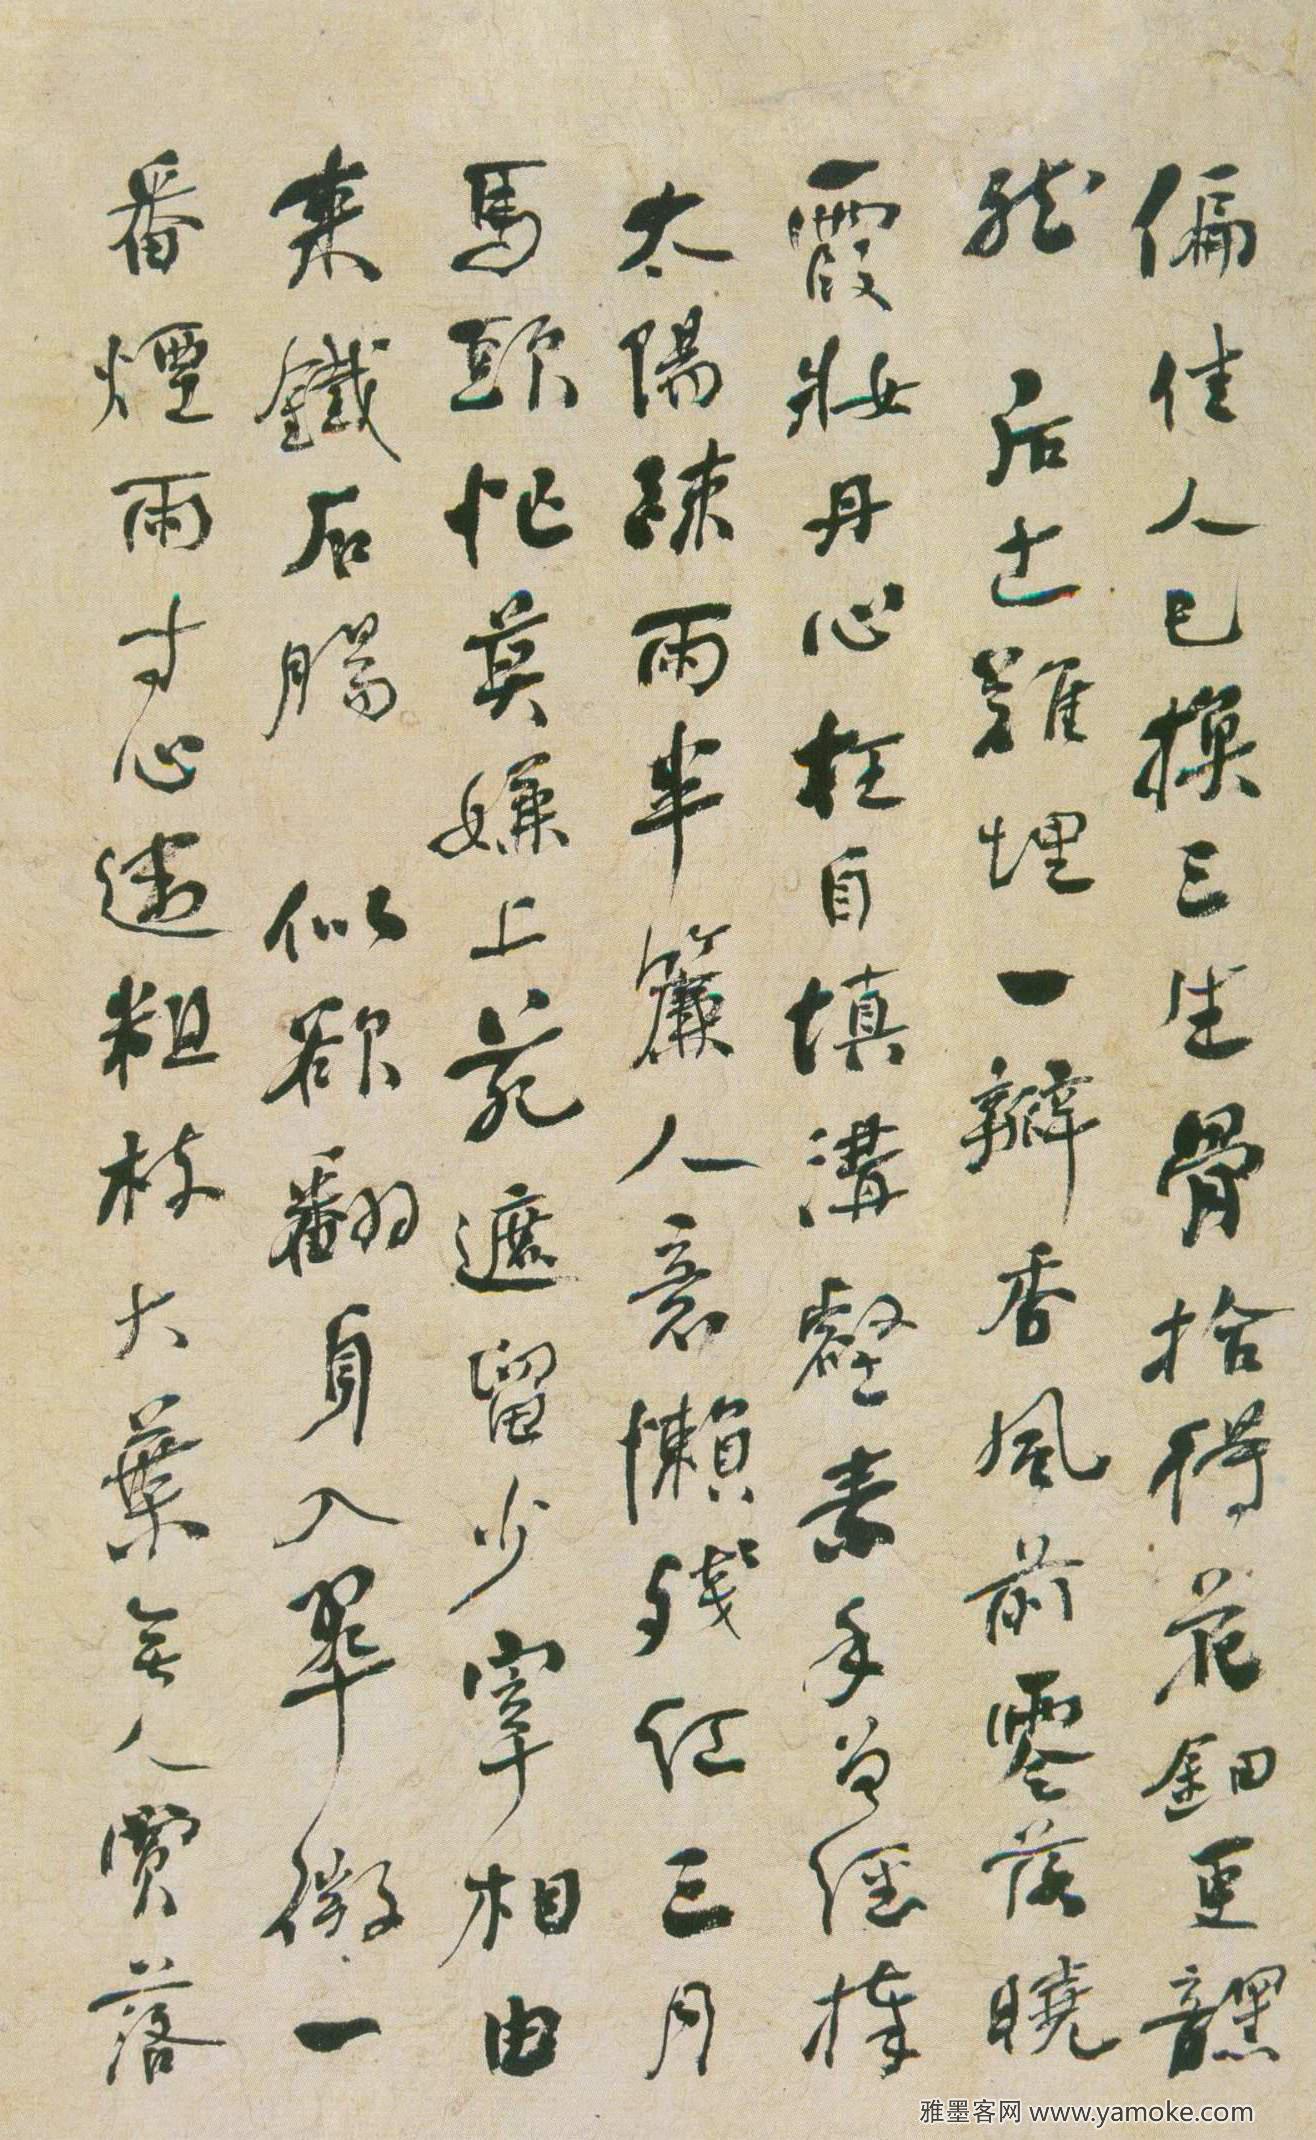 偏佳人已換三生骨拾得花鈿更黯
然 后土難埋一瓣香風前零落曉
霞妝丹心枉自填溝壑素手曾經捧
太陽疎雨半簾人意懶殘紅三月
馬頭忙莫嫌上苑遮留少宰相由
来鐵石腸 似欲翻身入翠微一
番煙雨寸心違粗枝大葉無人賞落
雅墨客网 www.yamoke.com